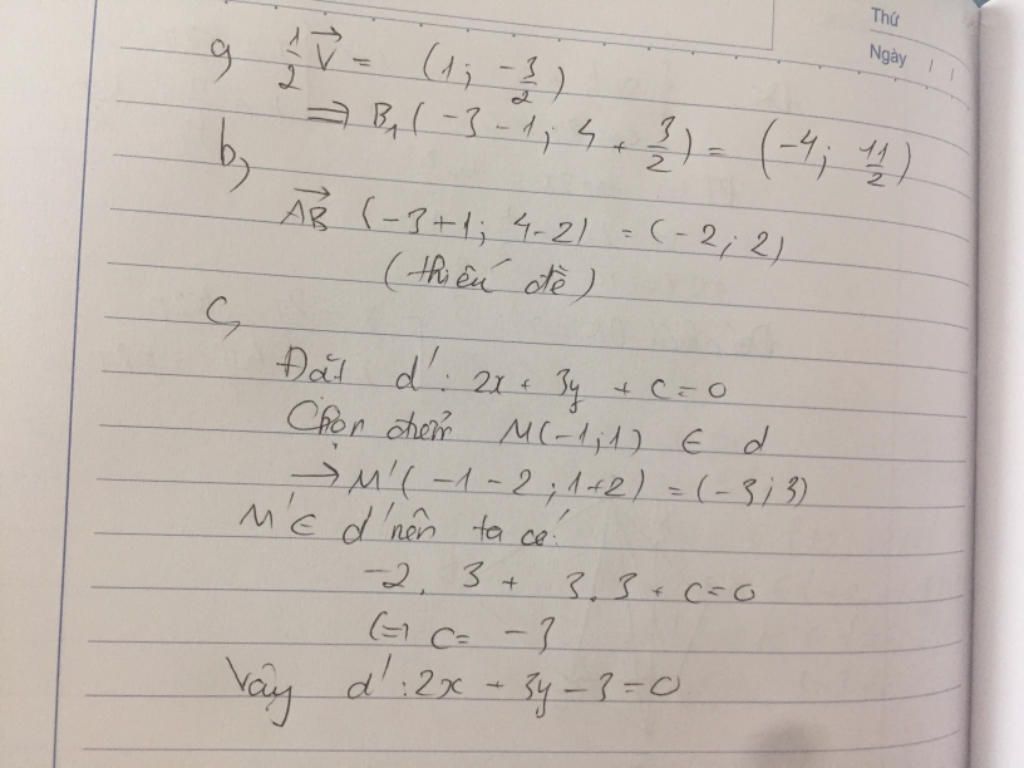 Thứ
Ngày
a) 1/2 V→ = (1; -3/2)
=> B₁(-3-1; 4+3/2) = (-4; 11/2)
b,
AB→ (-3+1; 4-2) = (-2; 2)
(thiếu đề)
c,
Đặt d': 2x + 3y + c = 0
Chọn điểm M(-1;1) ∈ d
→ M'(-1-2; 1+2) = (-3; 3)
M' ∈ d' nên ta có:
-2. 3 + 3. 3 + c = 0
(=) c = -3
Vậy d': 2x + 3y - 3 = 0